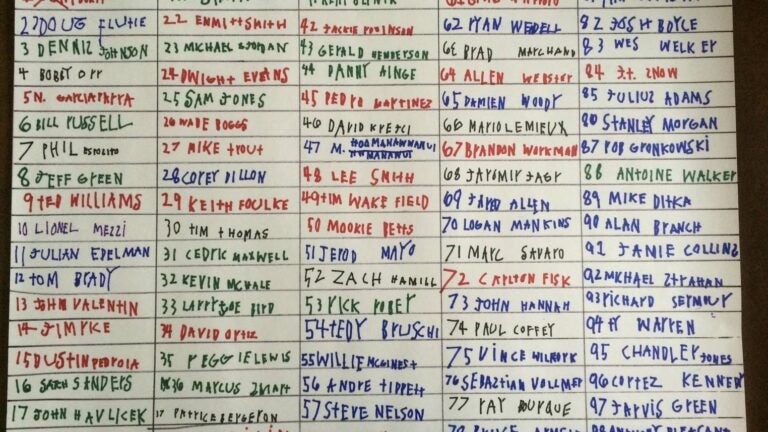 2 DOUG FLUTIE
3 DENNIZ JOHNSON
4 BOBBY ORR
5 N. GARCIAPARRA
6 BILL RUSSELL
7 PHIL ESPOSITO
8 JEFF GREEN
9 TED WILLIAMS
10 LIONEL MEZZI
11 JULIAN EDELMAN
12 TOM BRADY
13 JOHN VALENTIN
14 JIM RICE
15 DUSTIN PEDROIA
16 SATCH SANDERS
17 JOHN HAVLICEK
22 EMMITT SMITH
23 MICHAEL JORDAN
24 DWIGHT EVANS
25 SAM JONES
26 WADE BOGGS
27 MIKE TROUT
28 COREY DILLON
29 KEITH FOULKE
30 TIM THOMAS
31 CEDRIC MAXWELL
32 KEVIN MCHALE
33 LARRY JOE BIRD
34 DAVID ORTIZ
35 REGGIE LEWIS
36 MARCUS SMART
37 PATRICE BERGERON
42 JACKIE ROBINSON
43 GERALD HENDERSON
44 DANNY AINGE
45 PEDRO MARTINEZ
46 DAVID KREJCI
47 M.
48 LEE SMITH
49 TIM WAKE FIELD
50 MOOKIE BETTS
51 JEROD MAYO
52 ZACH HAMILL
53 RICK ROBEY
54 TEDY BRUSCHI
55 WILLIE MCGINEST
56 ANDRE TIPPETT
57 STEVE NELSON
62 RYAN WEDELL
63 BRAD MARCHAND
64 ALLEN WEBSTER
65 DAMIEN WOODY
66 MARIO LEMIEUX
67 BRANDON WORKMAN
68 JAROMIR JAGR
69 JARED ALLEN
70 LOGAN MANKINS
71 MARC SAVARD
72 CARLTON FISK
73 JOHN HANNAH
74 PAUL COFFEY
75 VINCE WILFORK
76 SEBAZTIAN VOLLMER
77 RAY BOURQUE
82 JOSH BOYCE
83 WES WELKER
84 J.T. ZNOW
85 JULIUZ ADAMS
86 STANLEY MORGAN
87 ROB GRONKOWSKI
88 ANTOINE WALKER
89 MIKE DITKA
90 ALAN BRANCH
91 JAMIE COLLINZ
92 MICHAEL ZTRAHAN
93 RICHARD SEYMOUR
94 TY WARREN
95 CHANDLER JONES
96 CORTEZ KENNEDY
97 JARVIS GREEN